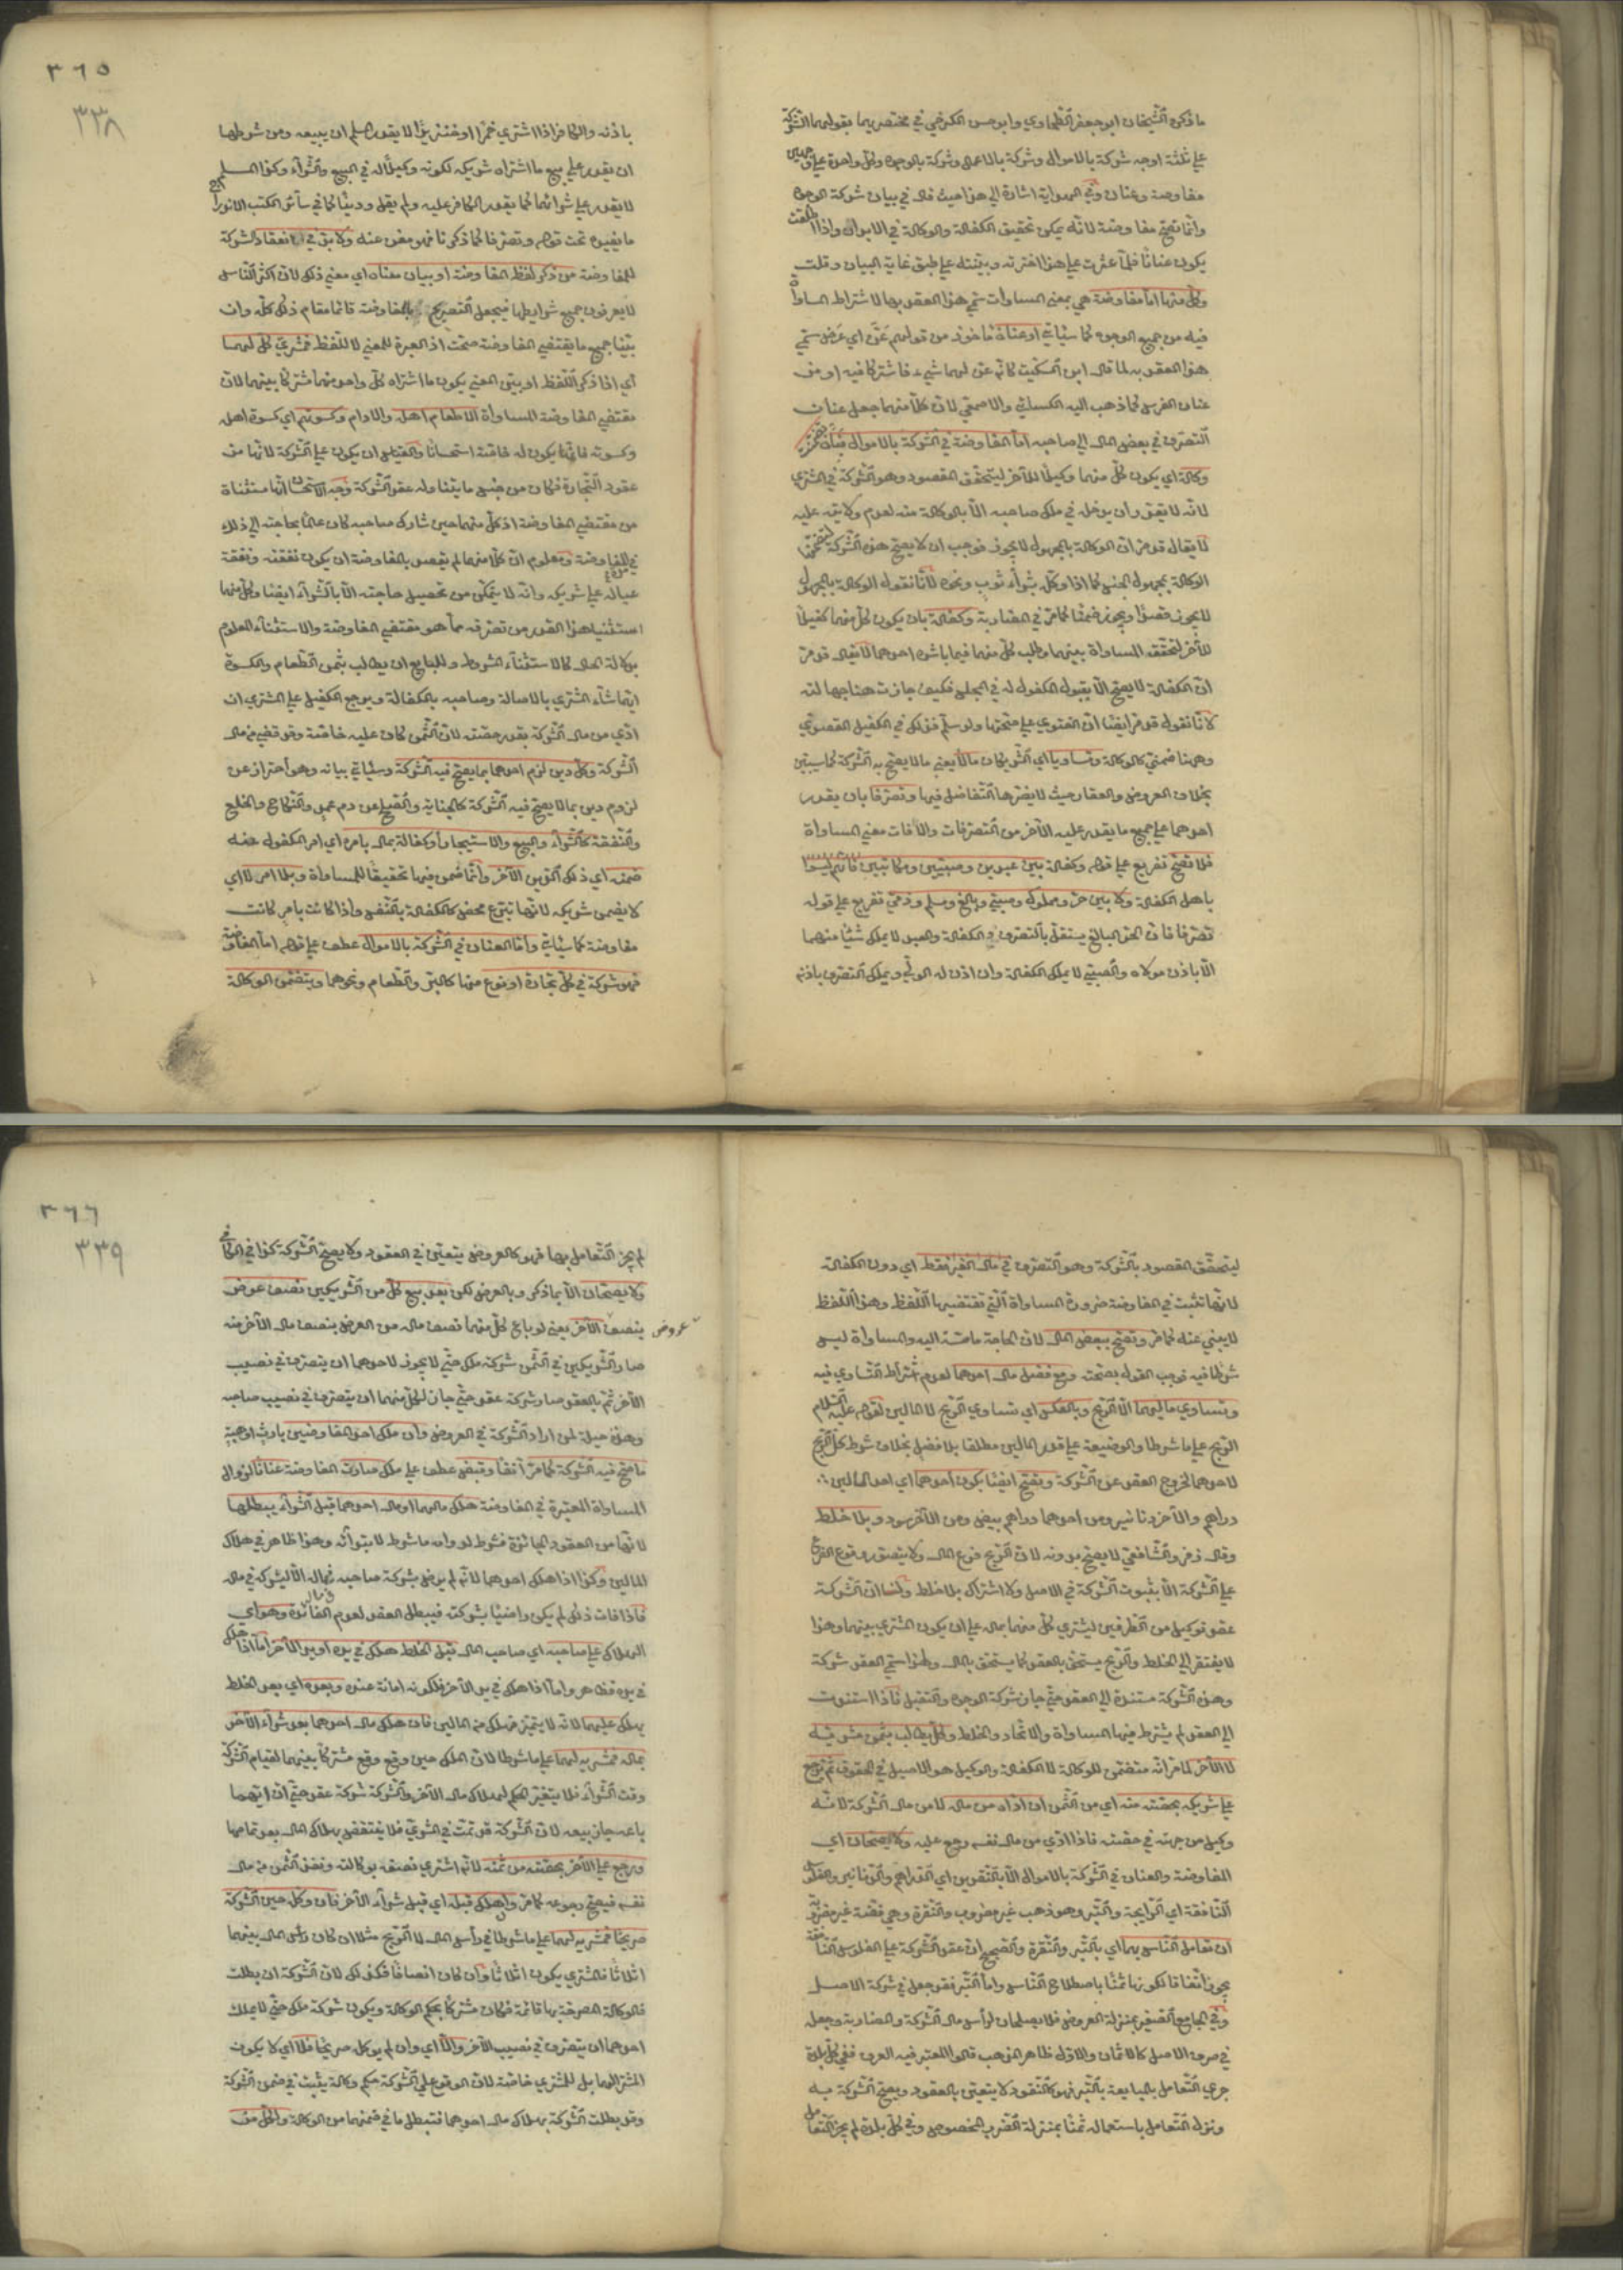 ما ذكره الشيخان ابو جعفر الطحاوي وابو حسن الكرخي في مختصريهما بقولهما الشركة
على ثلثة اوجه شركة بالاموال وشركة بالاعمال وشركة بالوجوه وكل واحدة على وجهين
مفاوضة وعنان وفي الهداية اشارة الى هذا حيث قال في بيان شركة الوجوه
وانما تصح مفاوضة لانه يمكن تحقيق الكفالة والوكالة في الابدال واذا اطلقت
يكون عنانا فلما عثرت على هذا اخترته وبينته على طبق غاية البيان وقلت
وكل منها اما مفاوضة هي بمعنى المساواة سمي هذا العقد بها لاشتراط المساواة
فيه من جميع الوجوه كما سيأتي او عنان مأخوذ من قولهم عنّ اي عرض سمي
هذا العقد به لما قال ابن السكيت كانه عن لهما شيء فاشتركا فيه او من
عنان الفرس كما ذهب اليه الكسائي والاصمعي لان كلا منهما جعل عنان
التصرف في بعض المال الى صاحبه اما المفاوضة في الشركة بالاموال فبأن تضمن
وكالة اي يكون كل منهما وكيلا للآخر ليتحقق المقصود وهو الشركة في المشترى
لانه لا يقدر ان يدخل في ملك صاحبه الا بالوكالة منه لعدم ولايته عليه
لا يقال قد مر ان الوكالة بالمجهول لا يجوز فوجب ان لا يصح هذه الشركة لتضمنها
الوكالة بمجهول الجنس كما اذا وكل بشراء ثوب ونحوه لانا نقول الوكالة بالمجهول
لا يجوز قصدا ويجوز ضمنا كما مر في المضاربة وكفالة بان يكون كل منهما كفيلا
للآخر لتحقق المساواة بينهما وطلب كل منهما فيما باشره احدهما لا يقال قد مر
ان الكفالة لا يصح الا بقبول المكفول له في المجلس فكيف جازت هنا جهالته
لانا نقول قد مر ايضا ان الفتوى على صحتها ولو سلم فذلك في الكفيل القصدي
وههنا ضمني كالوكالة وتساويا اي الشريكان مالا يعني مالا يصح به الشركة كما سيتبين
بخلاف العروض والعقار حيث لا يضرها التفاضل فيها وتصرفا بان يقدر
احدهما على جميع ما يقدر عليه الآخر من التصرفات والا فات معنى المساواة
فلا تصح تفريع على قوله وكفالة بين عبدين وصبيين ومكاتبين فانهم ليسوا
باهل الكفالة ولا بين حر ومملوك وصبي وبالغ ومسلم وذمي تفريع على قوله
تصرفا فان الحر البالغ يستقل بالتصرف والكفالة والعبد لا يملك شيئا منهما
الا باذن مولاه والصبي لا يملك الكفالة وان اذن له الولي ويملك التصرف باذنه
٣٦٥
٣٣٨
باذنه والكافر اذا اشترى خمرا او خنزيرا لا يقدر المسلم ان يبيعه ومن شرطها
ان يقدر على بيع ما اشتراه شريكه لكونه وكيلا له في البيع والشراء وكذا المسلم
لا يقدر على شرائهما كما يقدر الكافر عليه ولم يقل ودينا كما في سائر الكتب
ما يفيده تحت قوله وتصرفا كما ذكرنا فهو مغن عنه ولا بد في انعقاد الشركة
للمفاوضة من ذكر لفظ المفاوضة او بيان معناه اي معنى ذلك لان اكثر الناس
لا يعرفون جميع شرائطها فيجعل التصريح بالمفاوضة قائما مقام ذلك كله وان
بينا جميع ما يقتضي المفاوضة صحت اذ العبرة للمعنى لا للفظ فمشرى كل لهما
اي اذا ذكر اللفظ او بين المعنى يكون ما اشتراه كل واحد منهما مشتركا بينهما لان
مقتضى المفاوضة المساواة الا طعام اهله والادام وكسوتهم اي كسوة اهله
وكسوته فانها يكون له خاصة استحسانا والقياس ان يكون على الشركة لانها من
عقود التجارة فكان من جنس ما يتناوله عقد الشركة وجه الاستحسان انها مستثناة
من مقتضى المفاوضة اذ كل منهما حين شارك صاحبه كان عالما بحاجته الى ذلك
في المفاوضة ومعلوم ان كلا منهما لم يقصد بالمفاوضة ان يكون نفقته ونفقة
عياله على شريكه وانه لا يتمكن من تحصيل حاجته الا بالشراء ايضا وكل منهما
استثنيا هذا القدر من تصرفه مما هو مقتضى المفاوضة والاستثناء المعلوم
بدلالة الحال كالاستثناء المشروط وللبايع ان يطالب بثمن الطعام والكسوة
ايهما شاء المشتري بالاصالة وصاحبه بالكفالة ويرجع الكفيل على المشتري ان
ادى من مال الشركة بقدر حصته لان الثمن كان عليه خاصة وقد قضي من مال
الشركة وكل دين لزم احدهما بما يصح فيه الشركة وسيأتي بيانه وهو احتراز عن
لزوم دين بما لا يصح فيه الشركة كالجناية والصلح عن دم عمد والنكاح والخلع
والنفقة كالشراء والبيع والاستيجار او كفالة بمال بامره اي امر المكفول عنه
ضمنه اي ذلك الدين الآخر وانما ضمن فيها تحقيقا للمساواة وبلا امر لا اي
لا يضمن شريكه لانها تبرع محض كالكفالة بالنفس واذا كانت بامر كانت
مفاوضة كما سيأتي واما العنان في الشركة بالاموال عطف على قوله اما المفاوضة
فهو شركة في كل تجارة او نوع منها كالبر والطعام ونحوهما ويتضمن الوكالة
ليتحقق المقصود بالشركة وهو التصرف في مال الغير فقط اي دون الكفالة
لانها تثبت في المفاوضة ضرورة المساواة التي تقتضيها اللفظ وهذا اللفظ
لا يبنى عنه كما مر وتصح ببعض المال لان الحاجة ماسة اليه والمساواة ليس
شرطا فيه فوجب القول بصحته ومع فضل مال احدهما لعدم اشتراط التساوي فيه
وتساوي ماليهما لا الربح وبالعكس اي تساوي الربح لا المالين لقوله عليه السلام
الربح على ما شرطا والوضيعة على قدر المالين مطلقا بلا فصل بخلاف شرط كل الربح
لاحدهما لخروج العقد عن الشركة وتصح ايضا بكون احدهما اي احد المالين
دراهم والآخر دنانير ومن احدهما دراهم بيض ومن الآخر سود وبلا خلط
وقال زفر والشافعي لا يصح بدونه لان الربح فرع المال ولا يتصور وقوع الفرع
على الشركة الا بثبوت الشركة في الاصل ولا اشتراك بلا خلط ولنا ان الشركة
عقد توكيل من الطرفين ليشتري كل منهما بماله على ان يكون المشترى بينهما وهذا
لا يفتقر الى الخلط والربح يستحق بالعقد كما يستحق بالمال ولهذا سمي العقد شركة
وهذه الشركة مستندة الى العقد حتى جاز شركة الوجوه والتقبل فاذا استندت
الى العقد لم يشترط فيها المساواة والاتحاد والخلط وكل يطالب بثمن مشريه
لا الآخر لما مر انه متضمن للوكالة لا الكفالة والوكيل هو الاصيل في الحقوق ثم يرجع
على شريكه بحصته منه اي من الثمن ان اداه من ماله لا من مال الشركة لانه
وكيل من جهته في حصته فاذا ادى من مال نفسه رجع عليه ولا يصحان اي
المفاوضة والعنان في الشركة بالاموال الا بالنقدين اي الدراهم والدنانير والفلوس
النافقة اي الرايجة والتبر وهو ذهب غير مضروب والنقرة وهي فضة غير مضروبة
ان تعامل الناس بهما اي بالتبر والنقرة والصحيح ان عقد الشركة على الفلوس النافقة
يجوز اتفاقا لكونها ثمنا باصطلاح الناس واما التبر فقد جعل في شركة الاصل
وفي الجامع الصغير بمنزلة العروض فلا يصلحان لرأس مال الشركة والمضاربة وجعل
في صرف الاصل كالاثمان والاول ظاهر المذهب قالوا المعتبر فيه العرف ففي كل بلدة
جرى التعامل بالمبايعة بالتبر فهو كالنقود لا يتعين بالعقود ويصح الشركة به
ونزل التعامل باستعماله ثمنا بمنزلة الضرب المخصوص وفي كل بلدة لم يجز التعامل
٣٦٦
٣٣٩
لم يجز التعامل بها فهو كالعروض يتعين في العقود ولا يصح الشركة كذا في الكافي
ولا يصحان الا بما ذكر وبالعرض لكن بعد بيع كل من الشريكين نصف عرض
بنصف الآخر يعني لو باع كل منهما نصف ماله من العرض بنصف مال الآخر منه
عروض
صار الشريكين في الثمن شركة ملك حتى لا يجوز لاحدهما ان يتصرف في نصيب
الآخر ثم بالعقد صار شركة عقد حتى جاز لكل منهما ان يتصرف في نصيب صاحبه
وهذه حيلة لمن اراد الشركة في العروض وان ملك احد المفاوضين بارث او هبة
ما صح فيه الشركة كما مر آنفا وقبض عطف على ملك صارت المفاوضة عنانا لزوال
المساواة المعتبرة في المفاوضة هلك مالهما او مال احدهما قبل الشراء يبطلها
لانها من العقود الجائزة فشرط لدوامه ما شرط لابتدائه وهذا ظاهر في هلاك
المالين وكذا اذا هلك احدهما لانه لم يرض بشركة صاحبه في ماله الا ليشركه في ماله
فاذا فات ذلك لم يكن راضيا بشركته فيبطل العقد لعدم الفائدة وهو اي
الهلاك على صاحبه اي صاحب المال قبل الخلط هلك في يده او يد الآخر اما اذا هلك
في يده فظاهر واما اذا هلك في يد الآخر فلكونه امانة عنده وبعده اي بعد الخلط
يهلك عليهما لانه لا يتميز فيهلك من المالين فان هلك مال احدهما بعد شراء الآخر
بماله فمشريه لهما على ما شرطا لان الملك حين وقع وقع مشتركا بينهما لقيام الشركة
وقت الشراء فلا يتغير الحكم لهلاك مال الآخر والشركة شركة عقد حتى ان ايهما
باعه جاز بيعه لان الشركة قد تمت في المشرى فلا ينتقض بهلاك المال بعد تمامها
ويرجع على الآخر بحصته من ثمنه لانه اشترى نصفه بوكالته ونقد الثمن من مال
نفسه فيصح رجوعه كما مر ولو هلك قبله اي قبل شراء الآخر فان وكل حين الشركة
صريحا فمشريه لهما على ما شرطا في رأس المال لا الربح مثلا ان كان رأس المال بينهما
اثلاثا فالمشترى يكون اثلاثا وان كان انصافا فكذلك لان الشركة ان بطلت
فالوكالة المصرحة بها قائمة فكان مشتركا بحكم الوكالة ويكون شركة ملك حتى لا يملك
احدهما ان يتصرف في نصيب الآخر والا اي وان لم يوكل صريحا فلا اي لا يكون
المشترى لهما بل للمشتري خاصة لان الوقوع على الشركة حكم وكالة يثبت في ضمن الشركة
وقد بطلت الشركة بهلاك مال احدهما فتبطل ما في ضمنها من الوكالة ولكل من